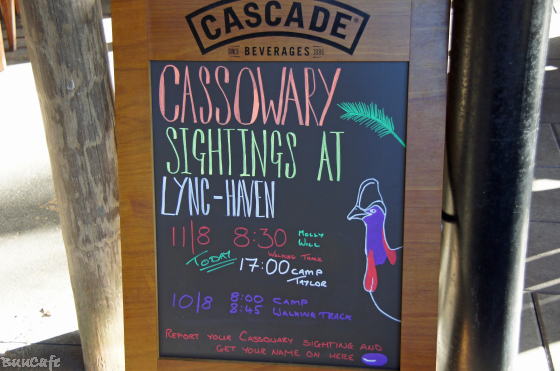 CASCADE
SINCE BEVERAGES 1886
CASSOWARY
SIGHTINGS AT
LYNC-HAVEN
11/8 8:30 MOLLY WILL
WALKING TRACK
TODAY
17:00 CAMP
TAYLOR
10/8 8:00 CAMP
8:45 WALKING TRACK
REPORT YOUR CASSOWARY SIGHTING AND
GET YOUR NAME ON HERE
BuuCafe